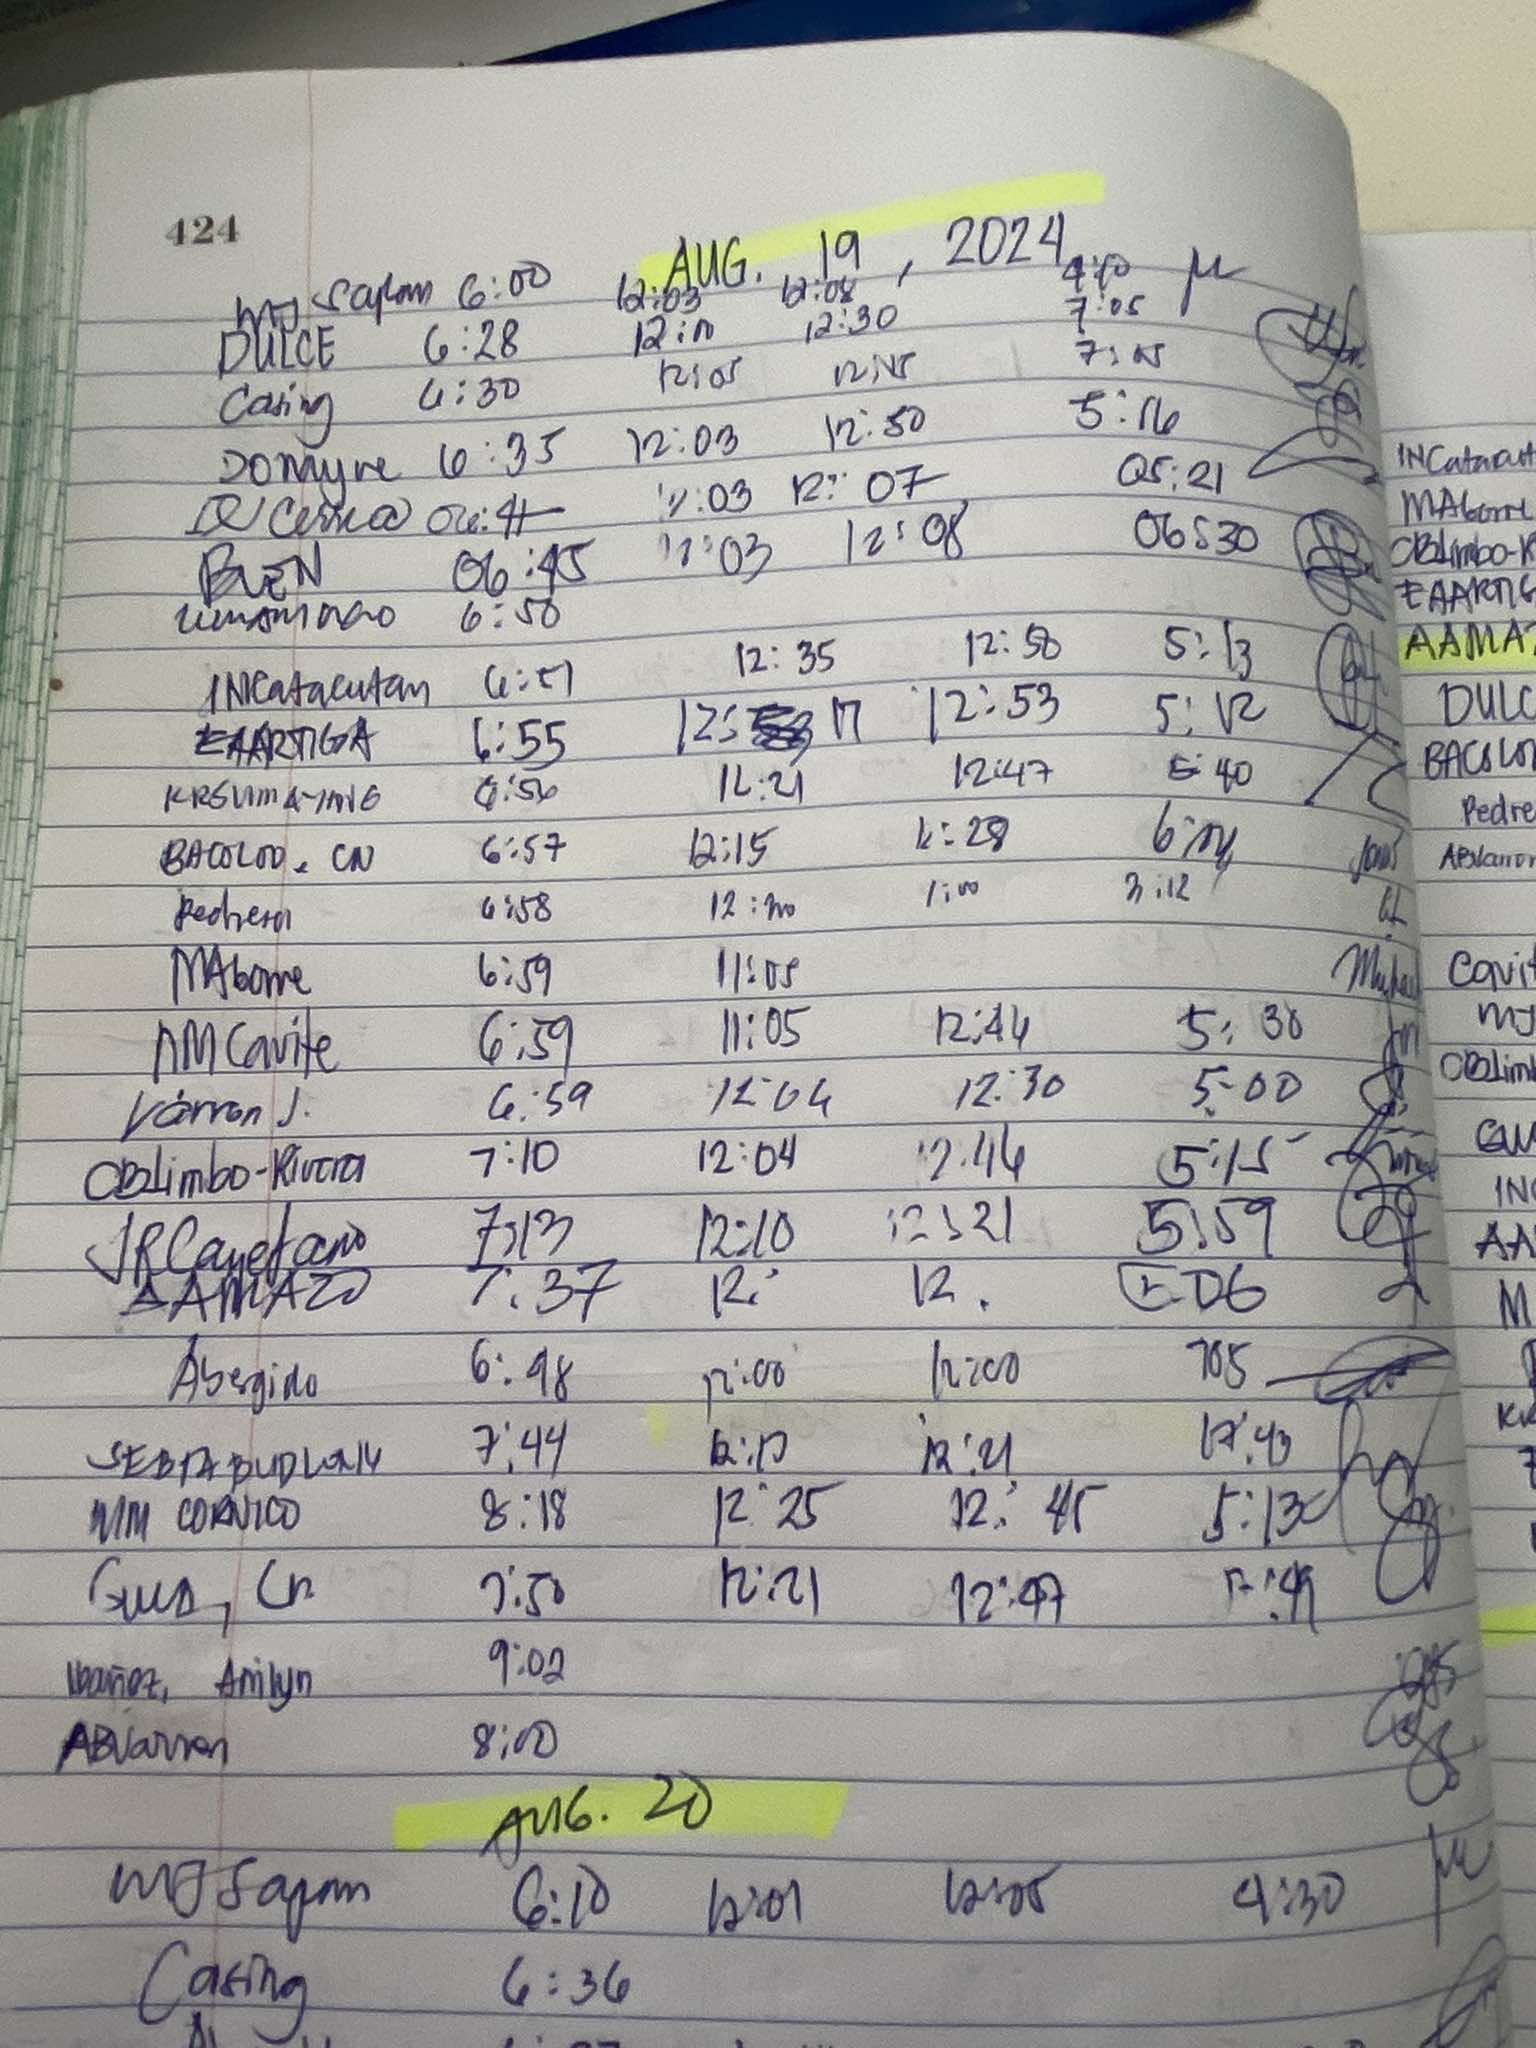 424
AUG. 19, 2024
MJ Sapan 6:00 12:03 12:08
DULCE 6:28 12:10 12:30 7:05
Casing 6:30 12:05 12:15 7:05
6:35 12:03 12:50 5:16
12:03 12:07 05:21
BUEN 06:45 12:03 12:08 06:30
6:50
INCatacutan 6:51 12:35 12:58 5:13
EAARTIGA 6:55 12: 17 12:53 5:12
6:56 12:21 12:47 5:40
BACOLOD, CN 6:57 12:15 12:28
Pedrera 6:58 12:20 1:00 3:12
MAborre 6:59 11:05
NMCavite 6:59 11:05 12:44 5:30
Varron J. 6:59 12:04 12:30 5:00
OBLimbo-Rivera 7:10 12:04 12:46 5:15
JRCayetano 7:13 12:10 12:21 5:59
AAMAZO 7:37 12: 12. 06
Abergido 6:48 12:00 12:00 705
7:44 12:17 12:21 17:43
MM CORNICO 8:18 12:25 12:45 5:13
7:50 12:21 12:47
Ibañez, Amilyn 9:02
ABVarron 8:00
AUG. 20
MJ Sapan 6:10 12:01 12:05 4:30
Casing 6:36
INCatacut
MAborre
OBLimbo-R
EAARTIG
AAMAZ
DULC
BACOLOD
Pedre
ABVarron
Cavit
MJ
OBLimb
INC
AA
M